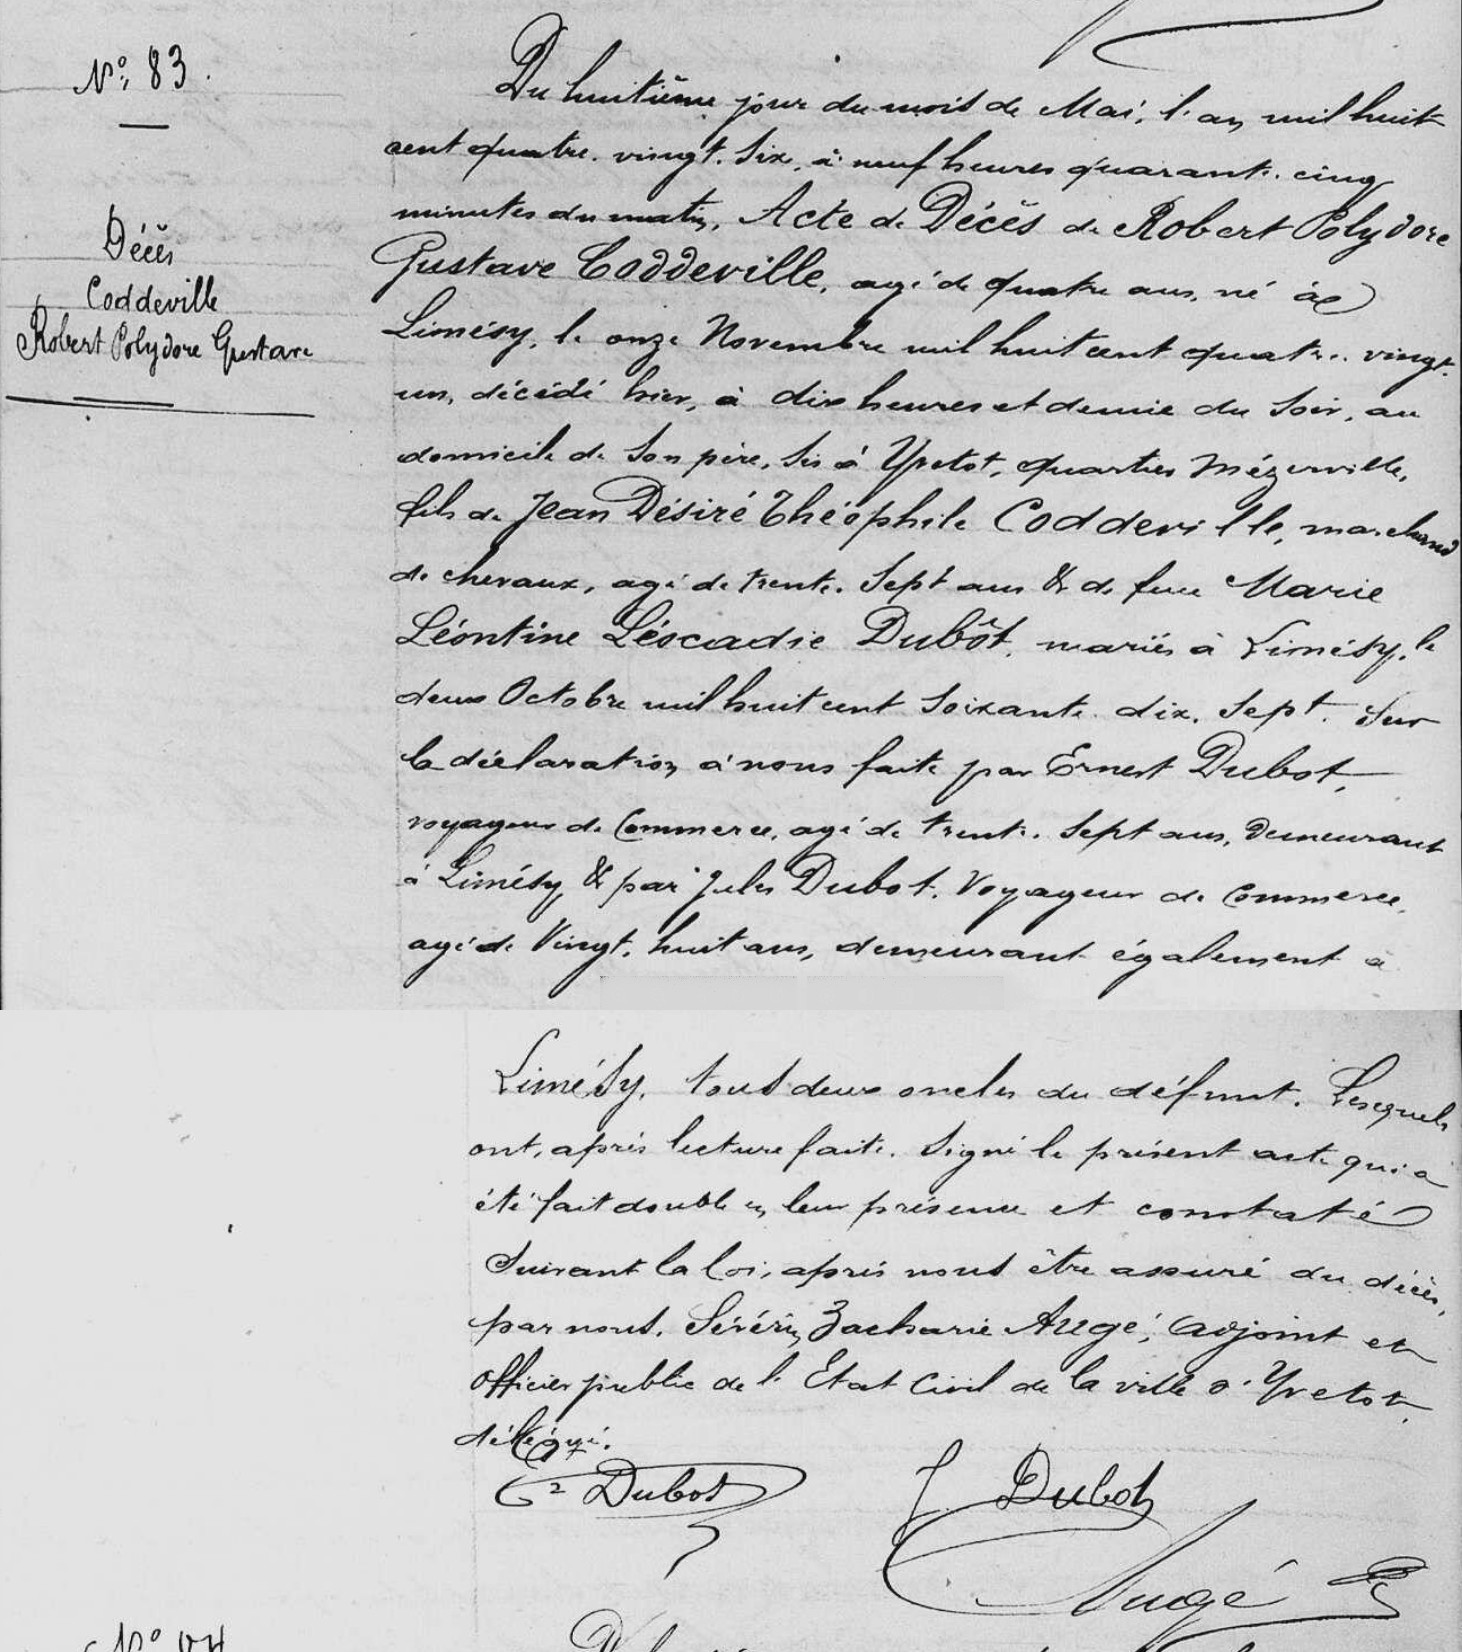 N° 83.
Décès
Coddeville
Robert Polydore Gustave
Du huitième jour du mois de Mai, l'an mil huit
cent quatre-vingt-six, à neuf heures quarante-cinq
minutes du matin, Acte de Décès de Robert Polydore
Gustave Coddeville, agé de quatre ans, né à
Limésy, le onze Novembre mil huit cent quatre-vingt-
un, décédé hier, à dix heures et demie du soir, au
domicile de son père, sis à Yvetot, quartier Mézerville,
fils de Jean Désiré Théophile Coddeville, marchand
de chevaux, agé de trente-sept ans & de feue Marie
Léontine Léocadie Dubôt, mariés à Limésy, le
deux Octobre mil huit cent soixante-dix-sept. Sur
la déclaration à nous faite par Ernest Dubot,
voyageur de Commerce, agé de trente-sept ans, demeurant
à Limésy & par Jules Dubot, Voyageur de Commerce,
agé de Vingt-huit ans, demeurant également à
Limésy, tous deux oncles du défunt. Lesquels
ont, après lecture faite, signé le présent acte qui a
été fait double en leur présence et constaté
suivant la loi, après nous être assuré du décès,
par nous, Sévérin Zacharie Augé, adjoint et
officier public de l'Etat Civil de la ville d'Yvetot,
délégué.
Dubot
J Dubot
Augé
N°